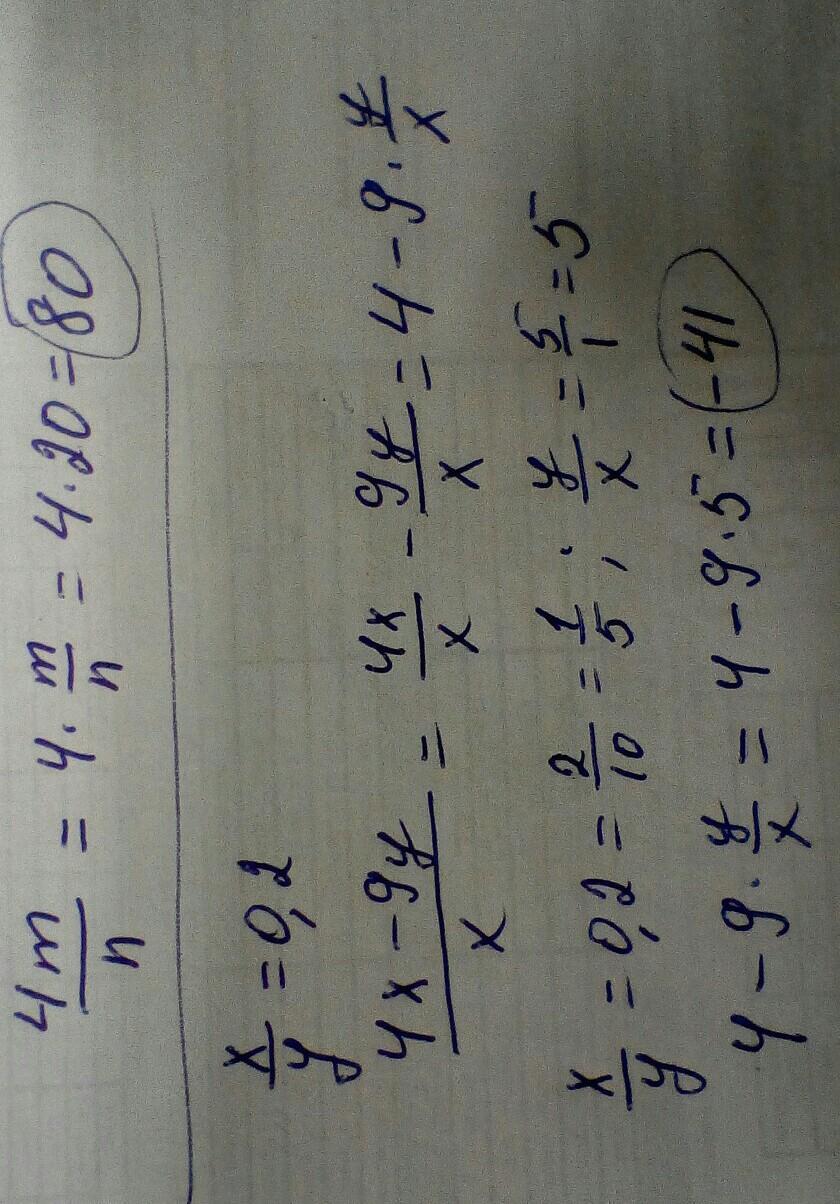 4m/n = 4 · m/n = 4 · 20 = 80
x/y = 0,2
4x - 9y/x = 4x/x - 9y/x = 4 - 9 · y/x
x/y = 0,2 = 2/10 = 1/5 ; y/x = 5/1 = 5
4 - 9 · y/x = 4 - 9 · 5 = -41